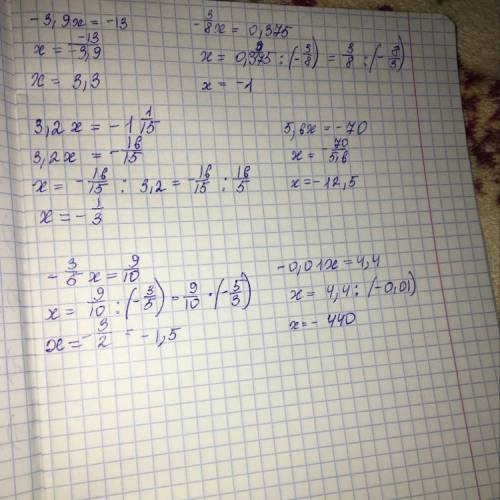 -3,9x = -13
x = -13/-3,9
x = 3,3
-3/8x = 0,375
x = 0,375 : (-3/8) = 3/8 : (-8/3)
x = -1
3,2x = -1 1/15
3,2x = -16/15
x = -16/15 : 3,2 = -16/15 : 16/5
x = -1/3
5,6x = -70
x = 70/5,6
x = -12,5
-3/5 x = 9/10
x = 9/10 : (-3/5) = 9/10 · (-5/3)
x = -3/2 = -1,5
-0,01x = 4,4
x = 4,4 : (-0,01)
x = -440